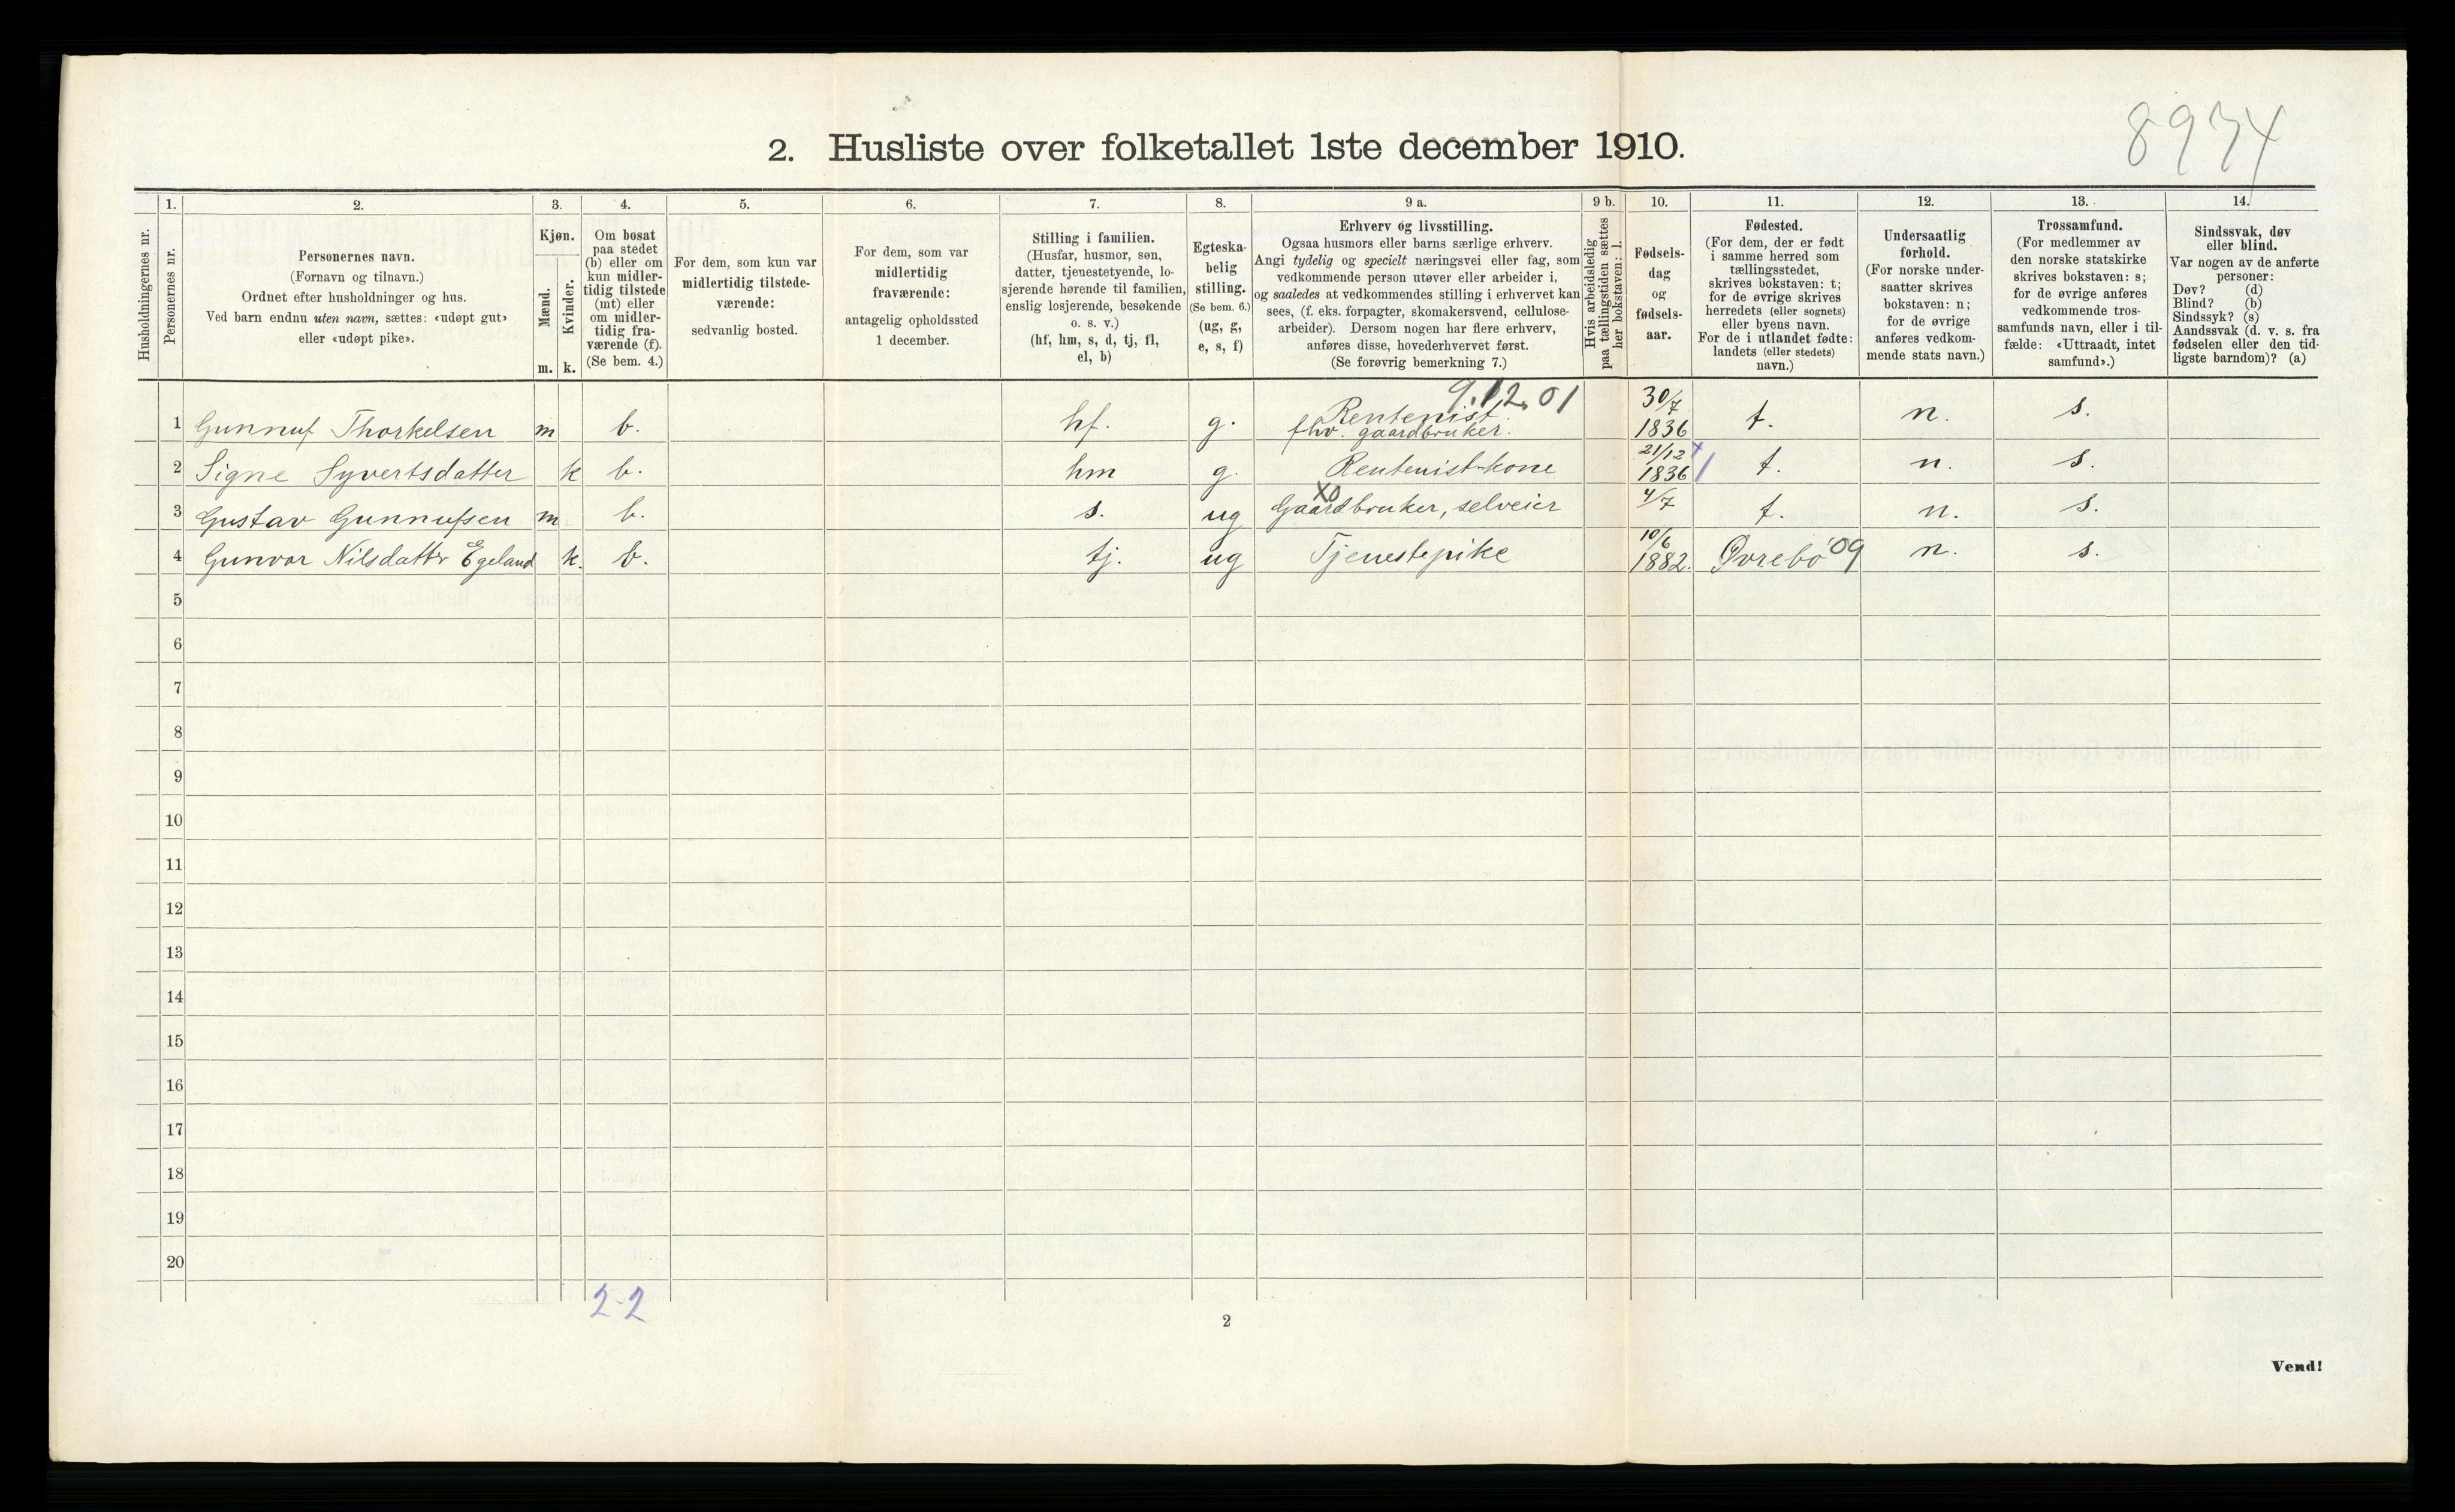 8974
2. Husliste over folketallet 1ste december 1910.
Husholdningernes nr.
1.
Personernes nr.
2.
Personernes navn.
(Fornavn og tilnavn.)
Ordnet efter husholdninger og hus.
Ved barn endnu uten navn, sættes: «udøpt gut»
eller «udøpt pike».
3.
Kjøn.
Mænd.
Kvinder.
m. k.
4.
Om bosat
paa stedet
(b) eller om
kun midler-
tidig tilstede
(mt) eller
om midler-
tidig fra-
værende (f).
(Se bem. 4.)
5.
For dem, som kun var
midlertidig tilstede-
værende:
sedvanlig bosted.
6.
For dem, som var
midlertidig
fraværende:
antagelig opholdssted
1 december.
7.
Stilling i familien.
(Husfar, husmor, søn,
datter, tjenestetyende, lo-
sjerende hørende til familien,
enslig losjerende, besøkende
o. s. v.)
(hf, hm, s, d, tj, fl,
el, b)
8.
Egteska-
belig
stilling.
(Se bem. 6.)
(ug, g,
e, s, f)
9 a.
Erhverv og livsstilling.
Ogsaa husmors eller barns særlige erhverv.
Angi tydelig og specielt næringsvei eller fag, som
vedkommende person utøver eller arbeider i,
og saaledes at vedkommendes stilling i erhvervet kan
sees, (f. eks. forpagter, skomakersvend, cellulose-
arbeider). Dersom nogen har flere erhverv,
anføres disse, hovederhvervet først.
(Se forøvrig bemerkning 7.)
9 b.
Hvis arbeidsledig
paa tællingstiden sættes
her bokstaven: l.
10.
Fødsels-
dag
og
fødsels-
aar.
11.
Fødested.
(For dem, der er født
i samme herred som
tællingsstedet,
skrives bokstaven: t;
for de øvrige skrives
herredets (eller sognets)
eller byens navn.
For de i utlandet fødte:
landets (eller stedets)
navn.)
12.
Undersaatlig
forhold.
(For norske under-
saatter skrives
bokstaven: n;
for de øvrige
anføres vedkom-
mende stats navn.)
13.
Trossamfund.
(For medlemmer av
den norske statskirke
skrives bokstaven: s;
for de øvrige anføres
vedkommende tros-
samfunds navn, eller i til-
fælde: «Uttraadt, intet
samfund».)
14.
Sindssvak, døv
eller blind.
Var nogen av de anførte
personer:
Døv? (d)
Blind? (b)
Sindssyk? (s)
Aandssvak (d. v. s. fra
fødselen eller den tid-
ligste barndom)? (a)
9.12.01
1 Gunnuf Thorkelsen m b. hf. g. Rentenist fhv. gaardbruker. 30/7 1836 t. n. s.
2 Signe Syvertsdatter k b. hm g. Rentenist-kone 21/12 1836 t. n. s.
3 Gustav Gunnufsen m b. s. ug Gaardbruker, selveier 4/7 t. n. s.
4 Gunvor Nilsdatter Egeland k. b. tj. ug Tjenestepike 10/6 1882. Øvrebø 09 n. s.
5
6
7
8
9
10
11
12
13
14
15
16
17
18
19
20
2-2
2
Vend!